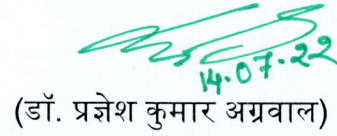 14.07.22
(डॉ. प्रज्ञेश कुमार अग्रवाल)